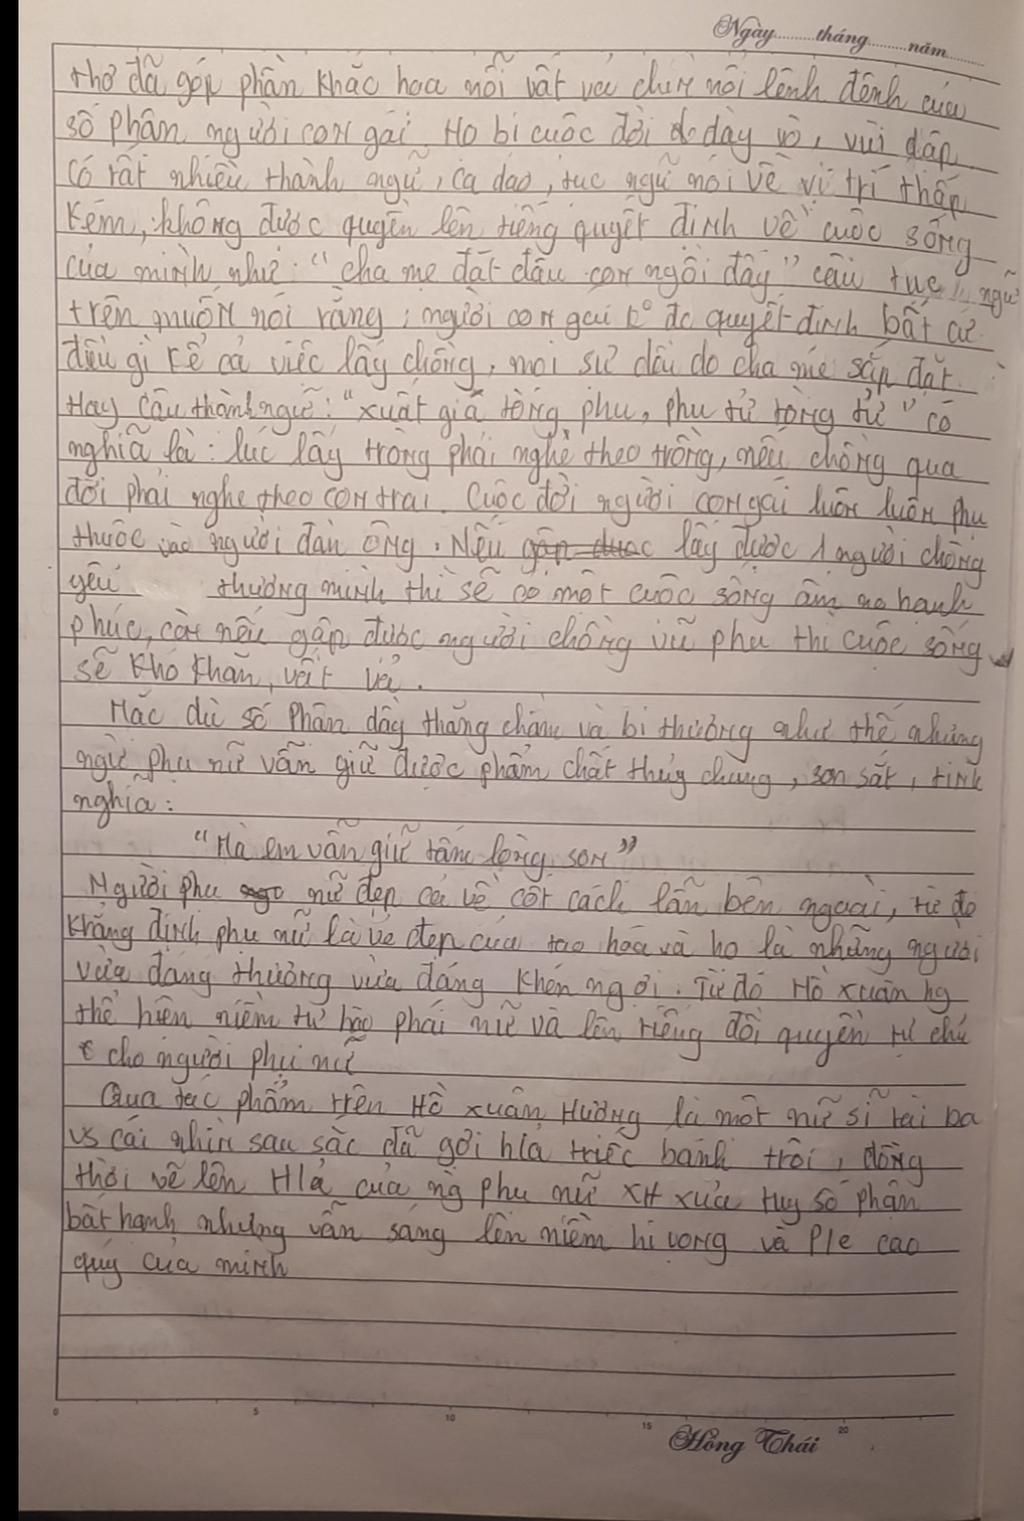 Ngày.........tháng.........năm.........
thơ đã góp phần khắc hoạ nỗi vất vả chìm nổi lênh đênh của
số phận người con gái. Họ bị cuộc đời dày vò, vùi dập
có rất nhiều thành ngữ, ca dao, tục ngữ nói về vị trí thấp
kém, không được quyền lên tiếng quyết định về cuộc sống
của mình như: "cha mẹ đặt đâu con ngồi đấy" câu tục ngữ
trên muốn nói rằng: người con gái ko đc quyết định bất cứ
điều gì kể cả việc lấy chồng, mọi sự đều do cha mẹ sắp đặt.
Hay câu thành ngữ: "xuất giá tòng phu, phu tử tòng tử" có
nghĩa là: lúc lấy trồng phải nghe theo trồng, nếu chồng qua
đời phải nghe theo con trai. Cuộc đời người con gái luôn luôn phụ
thuộc vào người đàn ông. Nếu gặp được lấy được 1 người chồng
yêu thương mình thì sẽ có một cuộc sống ấm no hạnh
phúc, còn nếu gặp được người chồng vũ phu thì cuộc sống
sẽ khó khăn, vất vả.
Mặc dù số phận đầy thăng chầm và bi thương như thế nhưng
ngừ phụ nữ vẫn giữ được phẩm chất thủy chung, son sắt, tình
nghĩa:
"Mà em vẫn giữ tấm lòng son"
Người phụ nữ đẹp cả về cốt cách lẫn bên ngoài, từ đó
khẳng định phụ nữ là vẻ đẹp của tạo hoá và họ là những người
vừa đáng thương vừa đáng khen ngợi. Từ đó Hồ xuân hg
thể hiện niềm tự hào phái nữ và lên tiếng đòi quyền tự chủ
cho người phụ nữ
Qua tác phẩm trên Hồ xuân Hương là một nữ sĩ tài ba
vs cái nhìn sau sắc đã gợi h/a triếc bánh trôi, đồng
thời vẽ lên H/ả của ng phụ nữ XH xưa tuy số phận
bất hạnh nhưng vẫn sáng lên niềm hi vọng và P/c cao
quý của mình
0 5 10 15 20
Hồng Thái